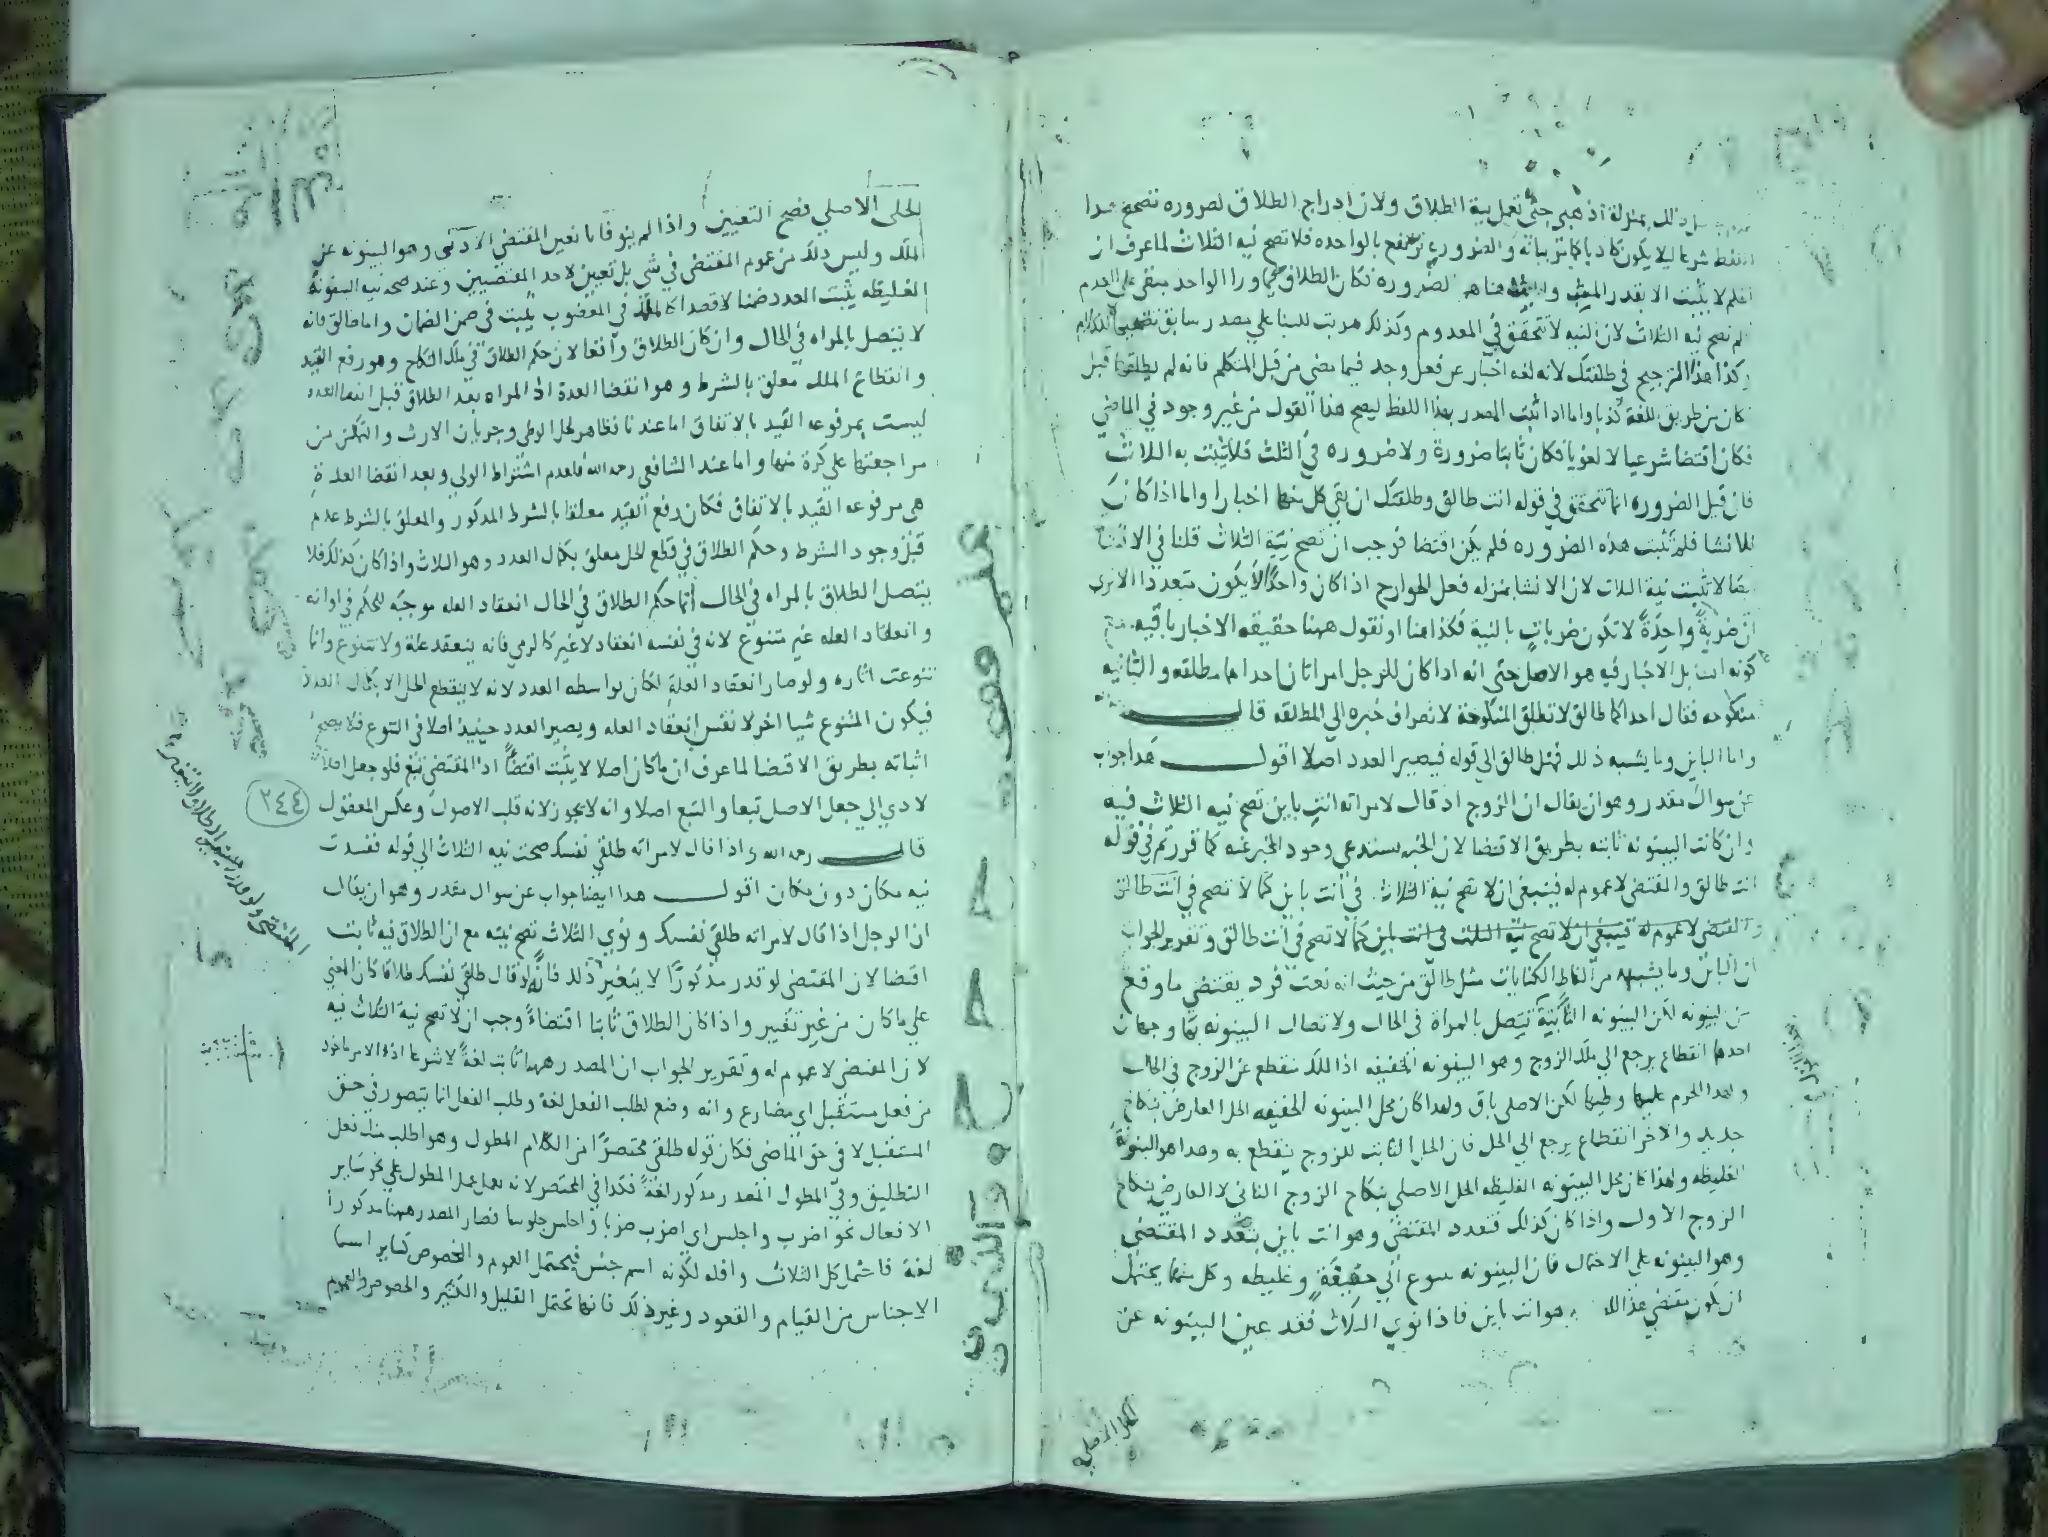 ذلك بمنزلة اذهبي حتى تعمل نية الطلاق ولان ادراج الطلاق لضروره تصحيح هذا
اللفظ شرعا ليلا يكون كاذبا والضروره ترتفع بالواحده فلا تصح نيه الثلاث لما عرف ان
لا يثبت الا بقدر هنا هو لضروره فكان الطلاق فيما ورا الواحد مبقى على العدم
فلم تصح نيه الثلاث لان النيه لا تتحقق في المعدوم وكذلك ضربت للبنا على مصدر سابق تصحيحا للكلام
وكذا هذا الترجيح في طلقتك لانه لغه اخبار عن فعل وجد فيما مضى من قبل المتكلم فانه لم يطلقها قبل
كان من طريق اللغة كذبا واما اذا اثبت المصدر بهذا اللفظ ليصح هذا القول من غير وجود في الماضي
فكان اقتضا شرعيا لا لغويا فكان ثابتا ضرورة ولا ضروره في الثلث فلا يثبت به الثلاث
فان قيل الضروره انما تتحقق في قوله انت طالق وطلقتك ان بقي كل منهما اخبارا واما اذا كان
للانشا فلم تثبت هذه الضروره فلم يكن اقتضا فوجب ان تصح نيّة الثلاث قلنا في الانشا
ايضا لا تثبت نية الثلاث لان الانشا بمنزله فعل الجوارح اذا كان واحدًا لا يكون متعددا الا ترى
ان ضربةً واحدةً لا تكون ضربات بالنية فكذا هنا او نقول ههنا حقيقه الاخبار باقيه
كونه انشا بل الاخبار فيه هو الاصل حتى انه اذا كان للرجل امراتان احداهما مطلقه والثانيه
منكوحه فقال احداكما طالق لا تطلق المنكوحة لانصراف خبره الى المطلقه قال
واما الباين وما يشبه ذلك فمثل طالق الى قوله فيصير العدد اصلا اقول هذا جواب
عن سوال مقدر وهو ان يقال ان الزوج اذ قال لامراته انت باين تصح نيه الثلاث فيه
وان كانت البينونه ثابته بطريق الاقتضا لان الخبر يستدعي وجود المخبر عنه كما قررتم في قوله
انت طالق والمقتضى لا عموم له فينبغي ان لا تصح نية الثلاث في انت باين كما لا تصح في انت طالق
والمقتضى لا عموم له فينبغي ان لا تصح نية الثلث في انت باين كما لا تصح في انت طالق وتقرير الجواب
ان الباين وما يشبهه من الفاظ الكنايات مثل طالق من حيث انه نعت فرد يقتضي ما وقع
من البينونه لكن البينونه الثابتة تتصل بالمراة في الحال ولاتصال البينونه بها وجهان
احدهما انقطاع يرجع الى ملك الزوج وهو البينونه الخفيفه اذ الملك ينقطع عن الزوج في الحال
وطيها لكن الاصلي باق ولهذا كان محل البينونه الخفيفه الحل العارض بنكاح
جديد والاخر انقطاع يرجع الى الحل فان الحل الثابت للزوج ينقطع به وهذا هو البينونة
الغليظه ولهذا كان محل البينونه الغليظه الحل الاصلي بنكاح الزوج الثاني لا العارض بنكاح
الزوج الاول واذا كان كذلك فتعدد المقتضي وهو انت باين بتعدد المقتضى
وهو البينونه على الاحتمال فان البينونه الى خفيفةٍ وغليظه وكل منهما يحتمل
ان يكون مقتضى وهو انت باين فاذا نوى الثلاث فقد عين البينونه عن
الحل الاصلي
الحل الاصلي فصح التعيين واذا لم ينو فانما تعين المقتضى الادنى وهو البينونه عن
الملك وليس ذلك من عموم المقتضى في شي بل تعيين لاحد المقتضيين وعند صحه نيه البينونة
الغليظه يثبت العدد ضمنا لا قصدا كالملك في المغصوب يثبت في ضمن الضمان واما طالق فانه
لا يتصل بالمراه في الحال وان كان الطلاق واقعا لان حكم الطلاق في ملك النكاح وهو رفع القيد
وانقطاع الملك معلق بالشرط وهو انقضا العدة اذ المراه بعد الطلاق قبل انقضا العده
ليست بمرفوعه القيد بالاتفاق اما عندنا فظاهر لحل الوطي وجريان الارث والتمكن من
مراجعتها على كرة منها واما عند الشافعي رحمه الله فلعدم اشتراط الولي وبعد انقضا العدة
هي مرفوعه القيد بالاتفاق فكان رفع القيد معلقا بالشرط المذكور والمعلق بالشرط عدم
قبل وجود الشرط وحكم الطلاق في قطع الحل معلق بكمال العدد وهو الثلاث واذا كان كذلك فلا
يتصل الطلاق بالمراه في الحال انما حكم الطلاق في الحال انعقاد العله موجبه للحكم في اوانه
وانعقاد العله غير متنوع لانه في نفسه انعقاد لا غير كالرمي فانه ينعقد علة ولا يتنوع وانما
تنوعت اثاره ولو صار انعقاد العلة لكان بواسطه العدد لانه لا ينقطع الحل الا بكمال العدد
فيكون المتنوع شيا اخر لا نفس انعقاد العله ويصير العدد حينيذ اصلا في التنوع فلا يصح
اثباته بطريق الاقتضا لما عرف ان ما كان اصلا لا يثبت اقتضاً اذ المقتضى تبع فلو جعل اصلا
لادي الى جعل الاصل تبعا والتبع اصلا وانه لا يجوز لانه قلب الاصول وعكس المعقول
٢٤٤
قال رحمه الله واذا قال لامراته طلقي نفسك صحت نيه الثلاث الى قوله ففسدت
نيه مكان دون مكان اقول هذا ايضا جواب عن سوال مقدر وهو ان يقال
ان الرجل اذا قال لامراته طلقي نفسك ونوي الثلاث تصح نيته مع ان الطلاق فيه ثابت
اقتضا لان المقتضى لو قدر مذكورًا لا يتغير ذلك فانه لو قال طلقي نفسك طلاقا كان المعنى
على ما كان من غير تغيير واذا كان الطلاق ثابتا اقتضاءً وجب ان لا تصح نية الثلاث فيه
لان المقتضى لا عموم له وتقرير الجواب ان المصدر ههنا ثابت لغةً لا شرعا اذ الامر ماخوذ
من فعل مستقبل اي مضارع وانه وضع لطلب الفعل لغة وطلب الفعل انما يتصور في حق
المستقبل لا في حق الماضي فكان قوله طلقي مختصرًا من الكلام المطول وهو اطلب منك فعل
التطليق وفي المطول المصدر مذكور لغةً فكذا في المختصر لانه يعمل عمل المطول على نحو ساير
الافعال نحو اضرب واجلس اي اضرب ضربا واجلس جلوسا فصار المصدر ههنا مذكورا
لغة فاحتمل كل الثلاث واقله لكونه اسم جنس فيحتمل العموم والخصوص كساير اسما
الاجناس من القيام والقعود وغير ذلك فانها تحتمل القليل والكثير والخصوص والعموم